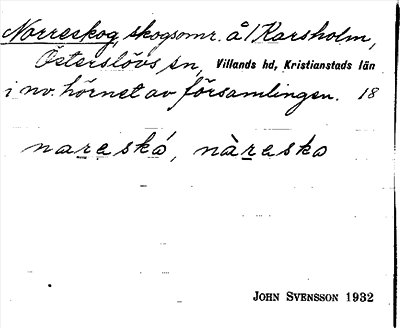 Norreskog, skogsomr. å 1 Karsholm,
Österslövs sn, Villands hd, Kristianstads län
i nv. hörnet av församlingen. 18
nareskó, nàresko
JOHN SVENSSON 1932